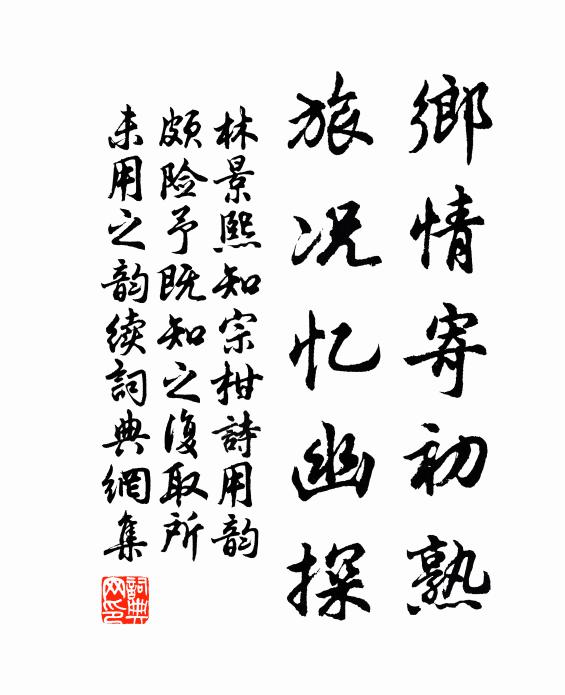 鄉情寄初熟
旅况忆幽探
林景熙知宗柑詩用韵
颇险予既知之復取所
未用之韵续詞典網集
詞典網印